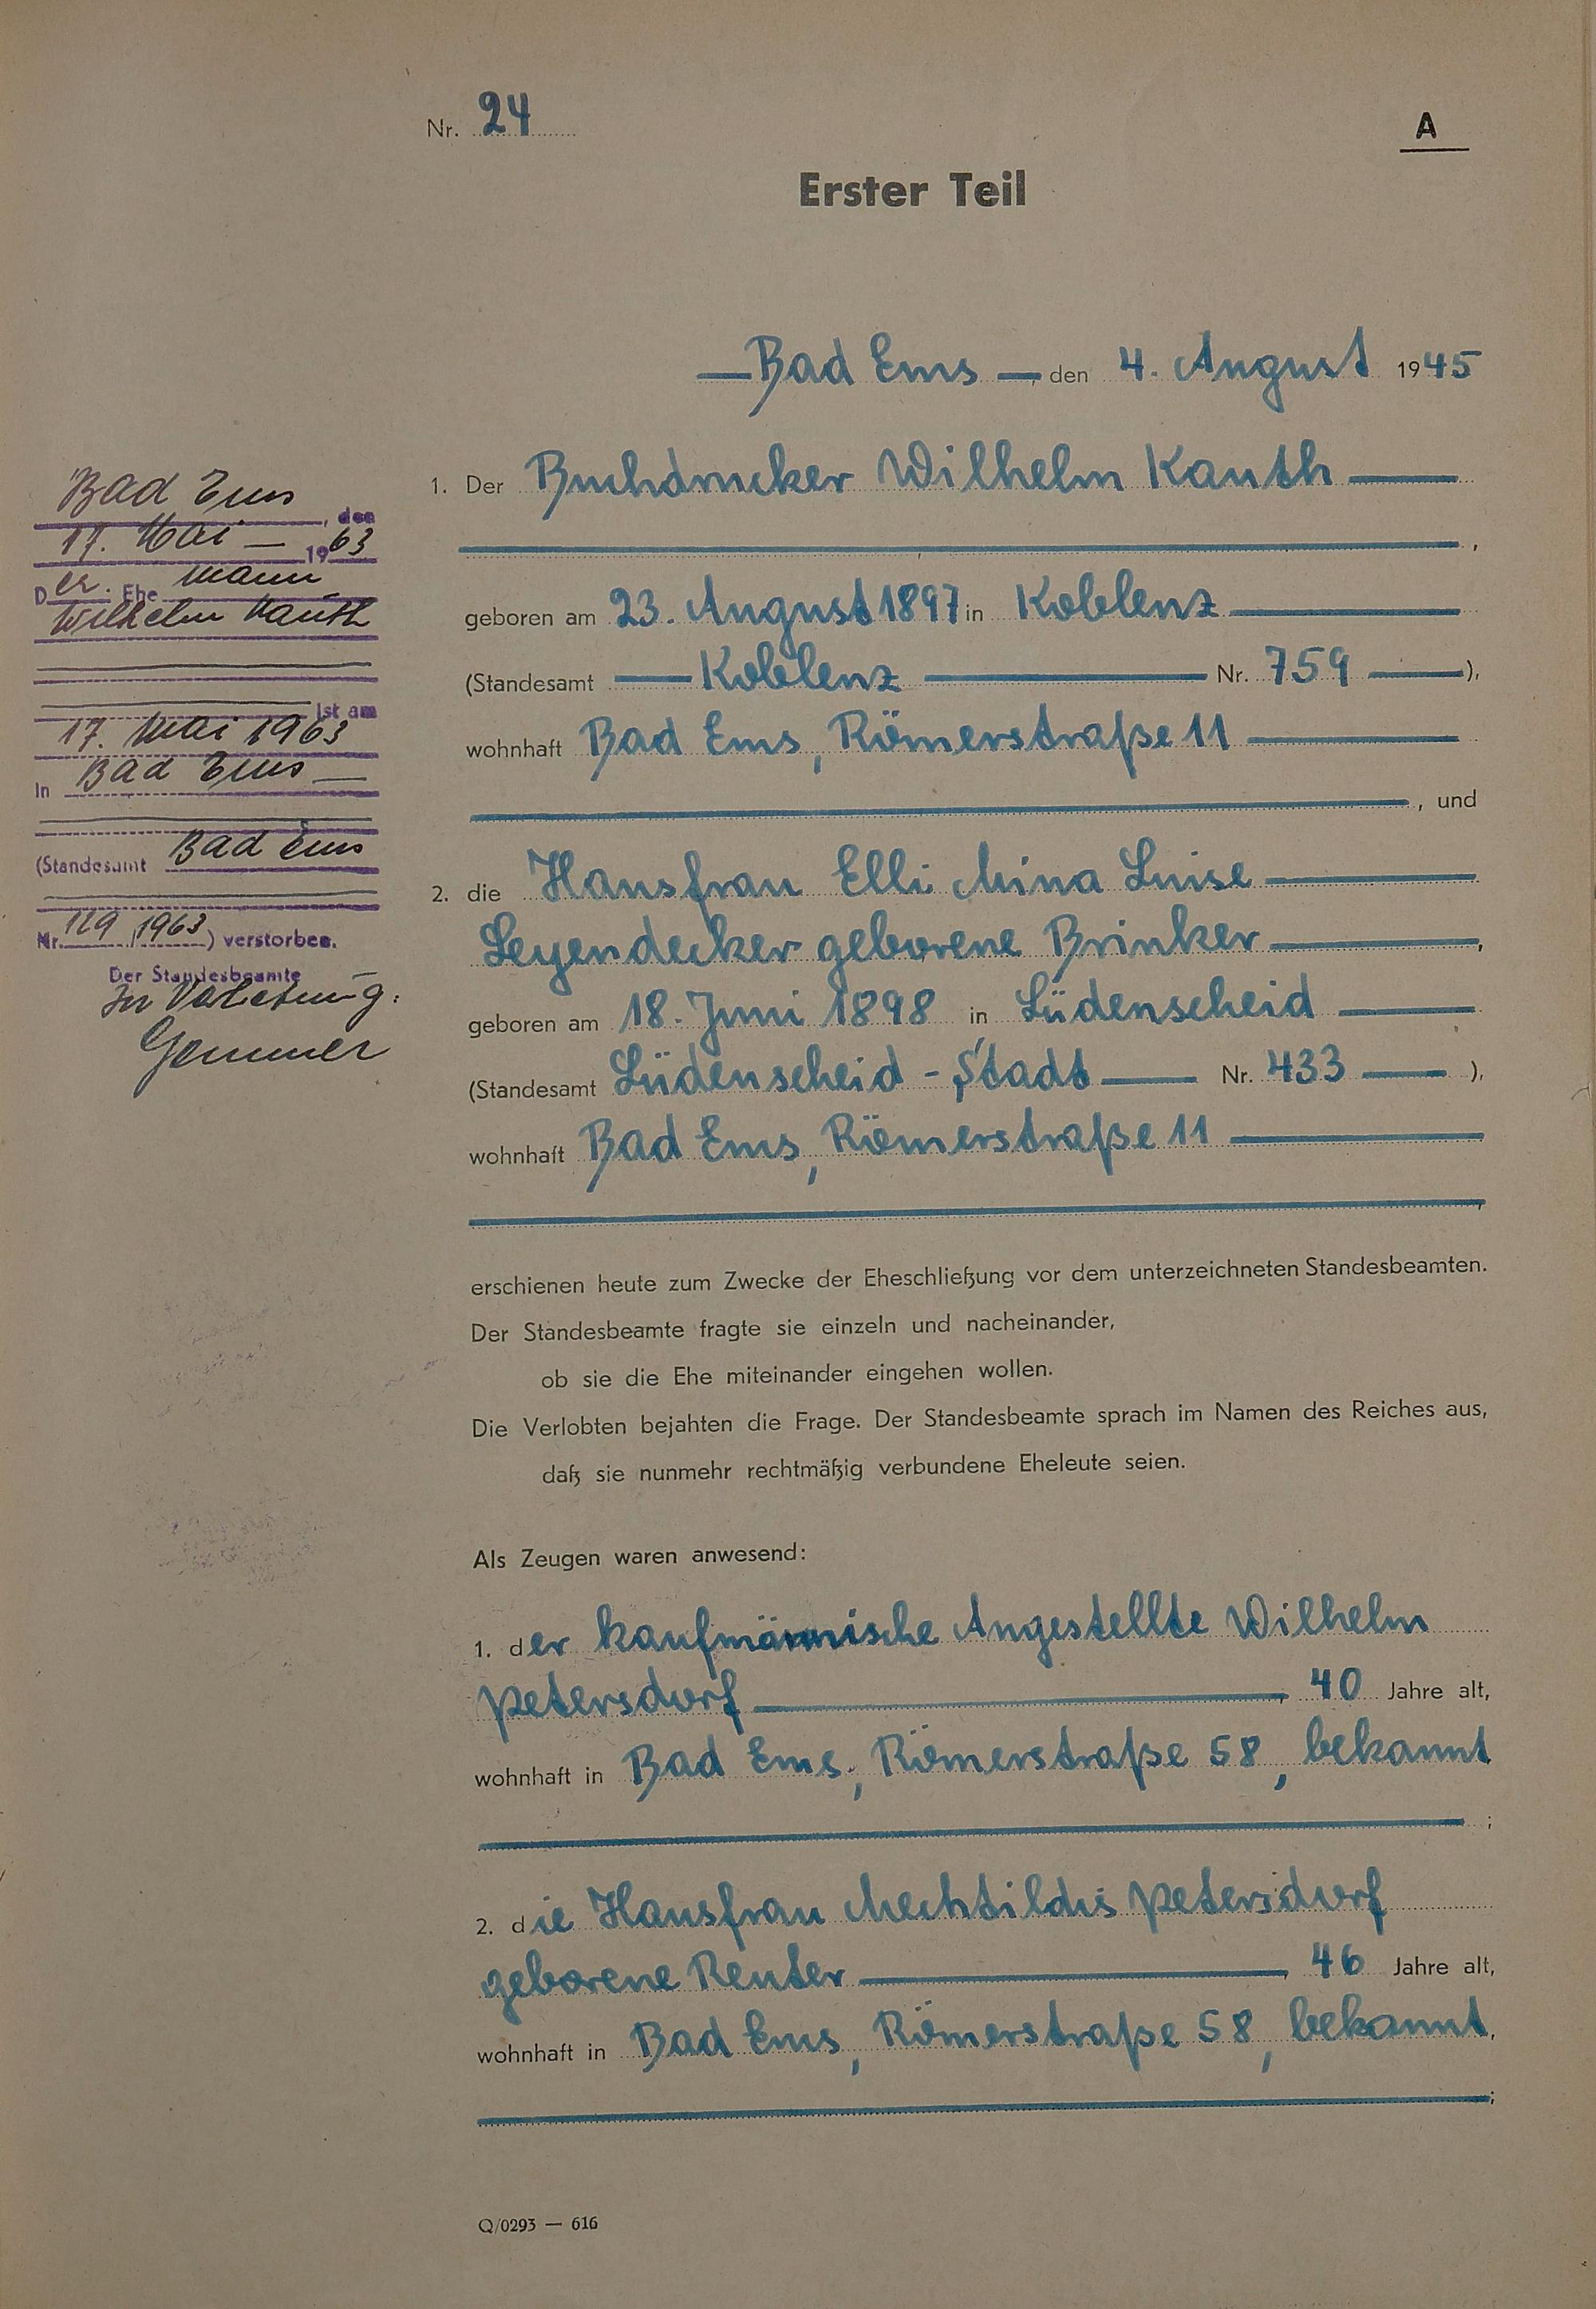 Nr. 24
A
Erster Teil
Bad Ems, den 4. August 1945
1. Der Buchdrucker Wilhelm Kauth
,
geboren am 23. August 1897 in Koblenz
(Standesamt Koblenz Nr. 759),
wohnhaft Bad Ems, Römerstraße 11
, und
2. die Hausfrau Elli Mina Luise
Leyendecker geborene Brinker,
geboren am 18. Juni 1898 in Lüdenscheid
(Standesamt Lüdenscheid - Stadt Nr. 433),
wohnhaft Bad Ems, Römerstraße 11
erschienen heute zum Zwecke der Eheschließung vor dem unterzeichneten Standesbeamten.
Der Standesbeamte fragte sie einzeln und nacheinander,
ob sie die Ehe miteinander eingehen wollen.
Die Verlobten bejahten die Frage. Der Standesbeamte sprach im Namen des Reiches aus,
daß sie nunmehr rechtmäßig verbundene Eheleute seien.
Als Zeugen waren anwesend:
1. der kaufmännische Angestellte Wilhelm
Petersdorf, 40 Jahre alt,
wohnhaft in Bad Ems, Römerstraße 58, bekannt
;
2. die Hausfrau Mechtildis Petersdorf
geborene Reuter, 46 Jahre alt,
wohnhaft in Bad Ems, Römerstraße 58, bekannt,
;
Q/0293 — 616
Bad Ems, den
17. Mai 1963
Der Ehemann
Wilhelm Kauth
ist am
17. Mai 1963
In Bad Ems
(Standesamt Bad Ems
Nr. 129/1963) verstorben.
Der Standesbeamte
In Vertretung:
Gemmer